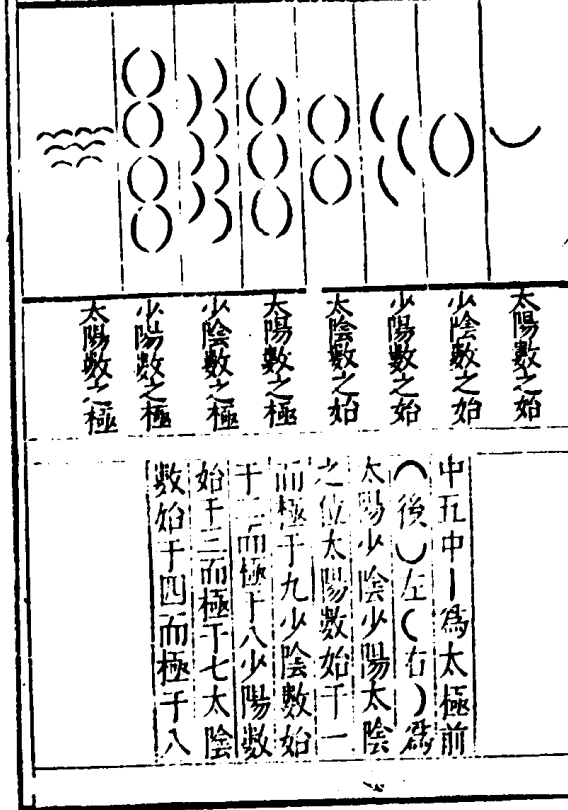 太陽數之始
少陰數之始
少陽數之始
太陰數之始
太陽數之極
少陰數之極
少陽數之極
太陽數之極
中五中丨爲太極前
⌒後◡左(右)爲
太陽少陰少陽太陰
之位太陽數始于一
而極于九少陰數始
于二而極于八少陽數
始于三而極于七太陰
數始于四而極于八